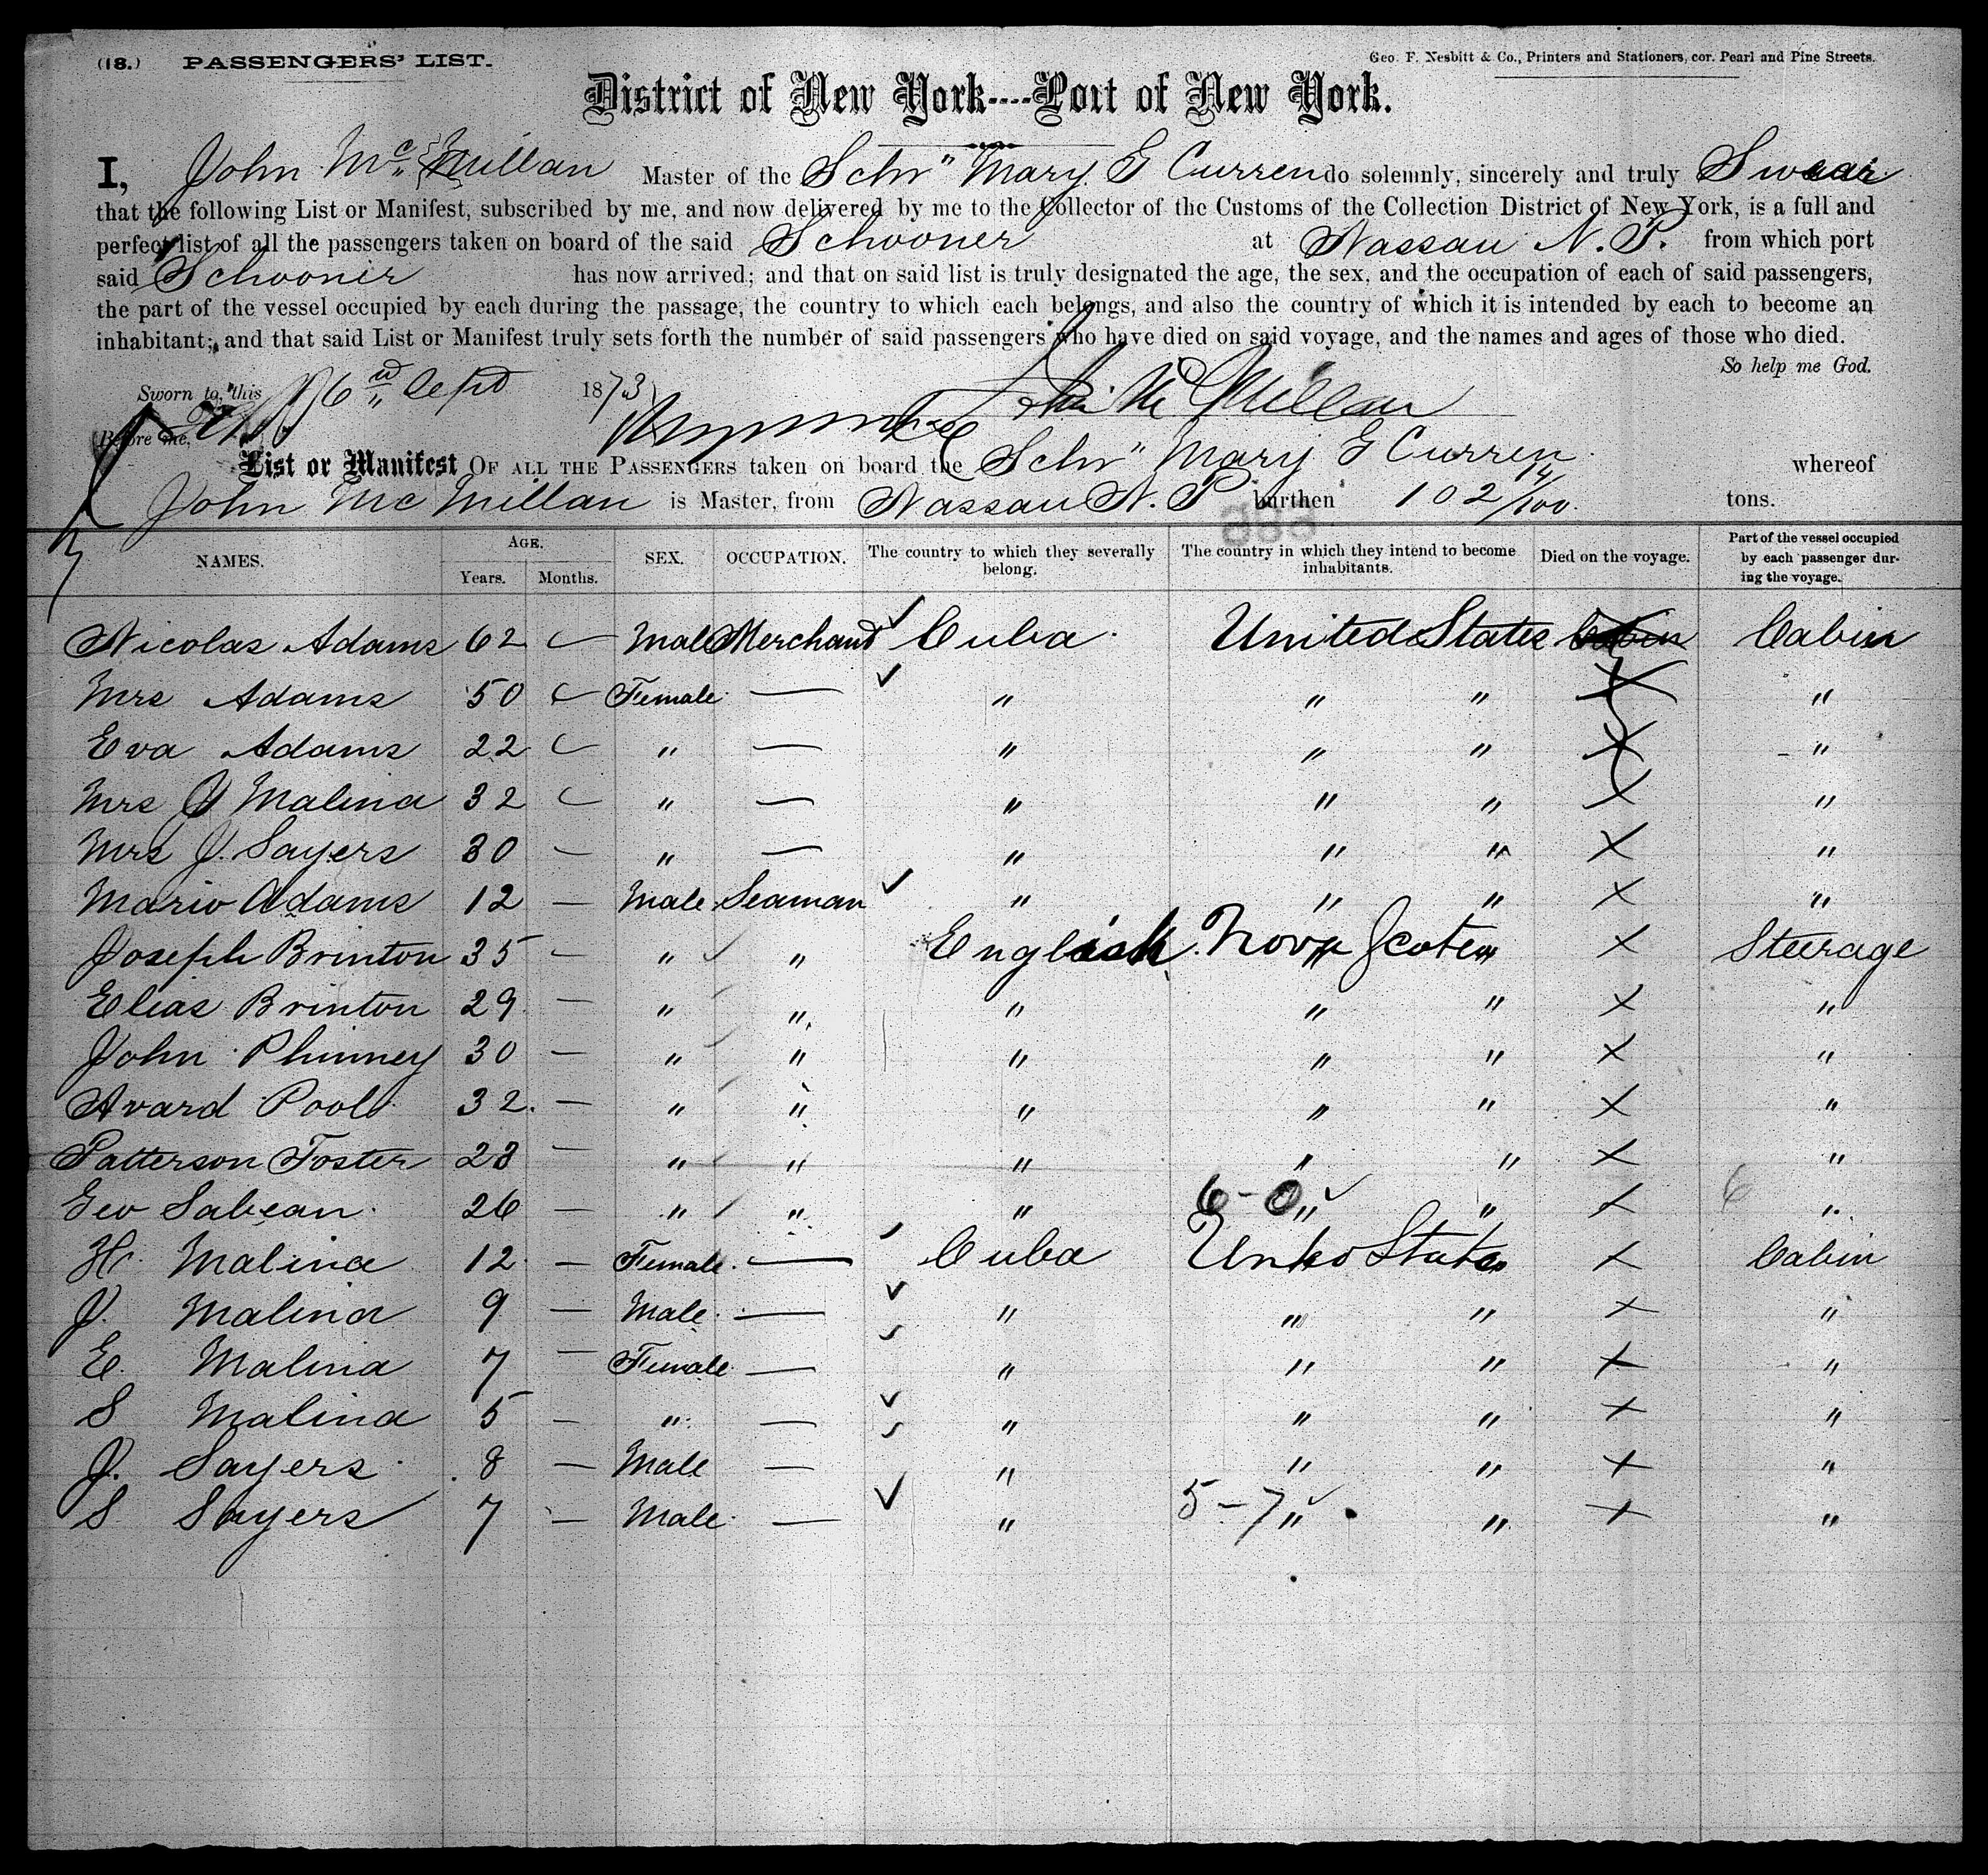 (18.) PASSENGERS' LIST.
Geo. F. Nesbitt & Co., Printers and Stationers, cor. Pearl and Pine Streets.
District of New York----Port of New York.
I, John Mc Millan Master of the Schr" Mary E Curren do solemnly, sincerely and truly Swear
that the following List or Manifest, subscribed by me, and now delivered by me to the Collector of the Customs of the Collection District of New York, is a full and
perfect list of all the passengers taken on board of the said Schooner at Nassau N. P. from which port
said Schooner has now arrived; and that on said list is truly designated the age, the sex, and the occupation of each of said passengers,
the part of the vessel occupied by each during the passage, the country to which each belongs, and also the country of which it is intended by each to become an
inhabitant; and that said List or Manifest truly sets forth the number of said passengers who have died on said voyage, and the names and ages of those who died.
So help me God.
Sworn to, this 6 Sept 1873 John Mc Millan
Before me,
List or Manifest OF ALL THE PASSENGERS taken on board the Schr" Mary E Curren whereof
John Mc Millan is Master, from Nassau N. P burthen 102 14/100 tons.
NAMES. AGE. Years. Months. SEX. OCCUPATION. The country to which they severally belong. The country in which they intend to become inhabitants. Died on the voyage. Part of the vessel occupied by each passenger during the voyage.
Nicolas Adams 62 Male Merchant Cuba United States Cabin Cabin
Mrs Adams 50 Female — " " " "
Eva Adams 22 " — " " " "
Mrs J Malina 32 " — " " " "
Mrs J. Sayers 30 — " — " " " "
Mario Adams 12 — Male Seaman " " " "
Joseph Brinton 35 — " " English Nova Scotea " " Steerage
Elias Brinton 29 — " " " " " "
John Phinney 30 — " " " " " "
Avard Pool 32. — " " " " " "
Patterson Foster 28 — " " " " " "
Geo Sabean 26 — " " " 6-0 " " "
H. Malina 12 — Female — Cuba United States Cabin
J. Malina 9 — Male — " " " "
E. Malina 7 — Female — " " " "
S Malina 5 — " — " " " "
J. Sayers 8 — Male — " " " "
S Sayers 7 — Male — " 5-7 " " "